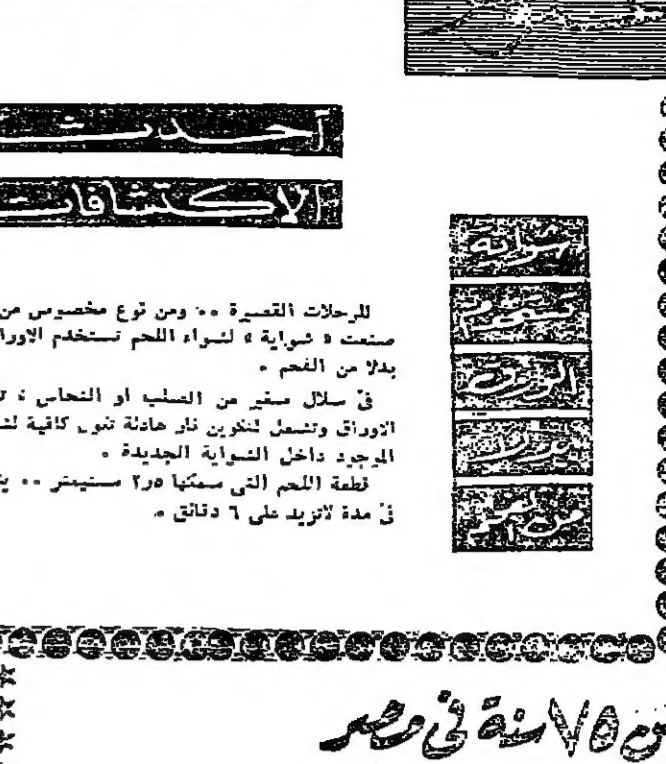 أحدث
الاكتشافات
شواية
تستخدم
الورق
بدلا
من الفحم
للرحلات القصيرة ٠٠ ومن نوع مخصوص من
صنعت « شواية » لشواء اللحم تستخدم الاوراق
بدلا من الفحم ٠
فى سلال صغير من الصلب أو النحاس ،
الاوراق وتشعل لتكوين نار هادئة تكون كافية
الموجود داخل الشواية الجديدة ٠
قطعة اللحم التى سمكها ٢٫٥ سنتيمتر ٠٠
فى مدة لاتزيد على ٦ دقائق ٠
٧٥ سنة فى مصر